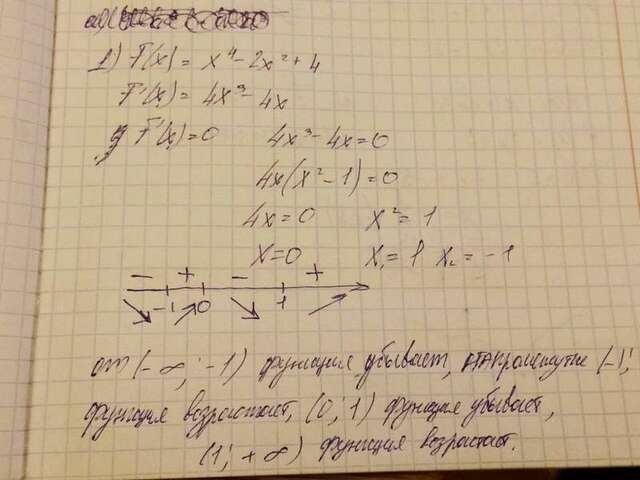 1) F(x) = x⁴ - 2x² + 4
F'(x) = 4x³ - 4x
F'(x) = 0 4x³ - 4x = 0
4x(x² - 1) = 0
4x = 0 x² = 1
x = 0 x₁ = 1 x₂ = -1
- + - +
-1 0 1
от (-∞; -1) функция убывает, на промежутке (-1;
функция возрастает, (0; 1) функция убывает,
(1; +∞) функция возрастает.